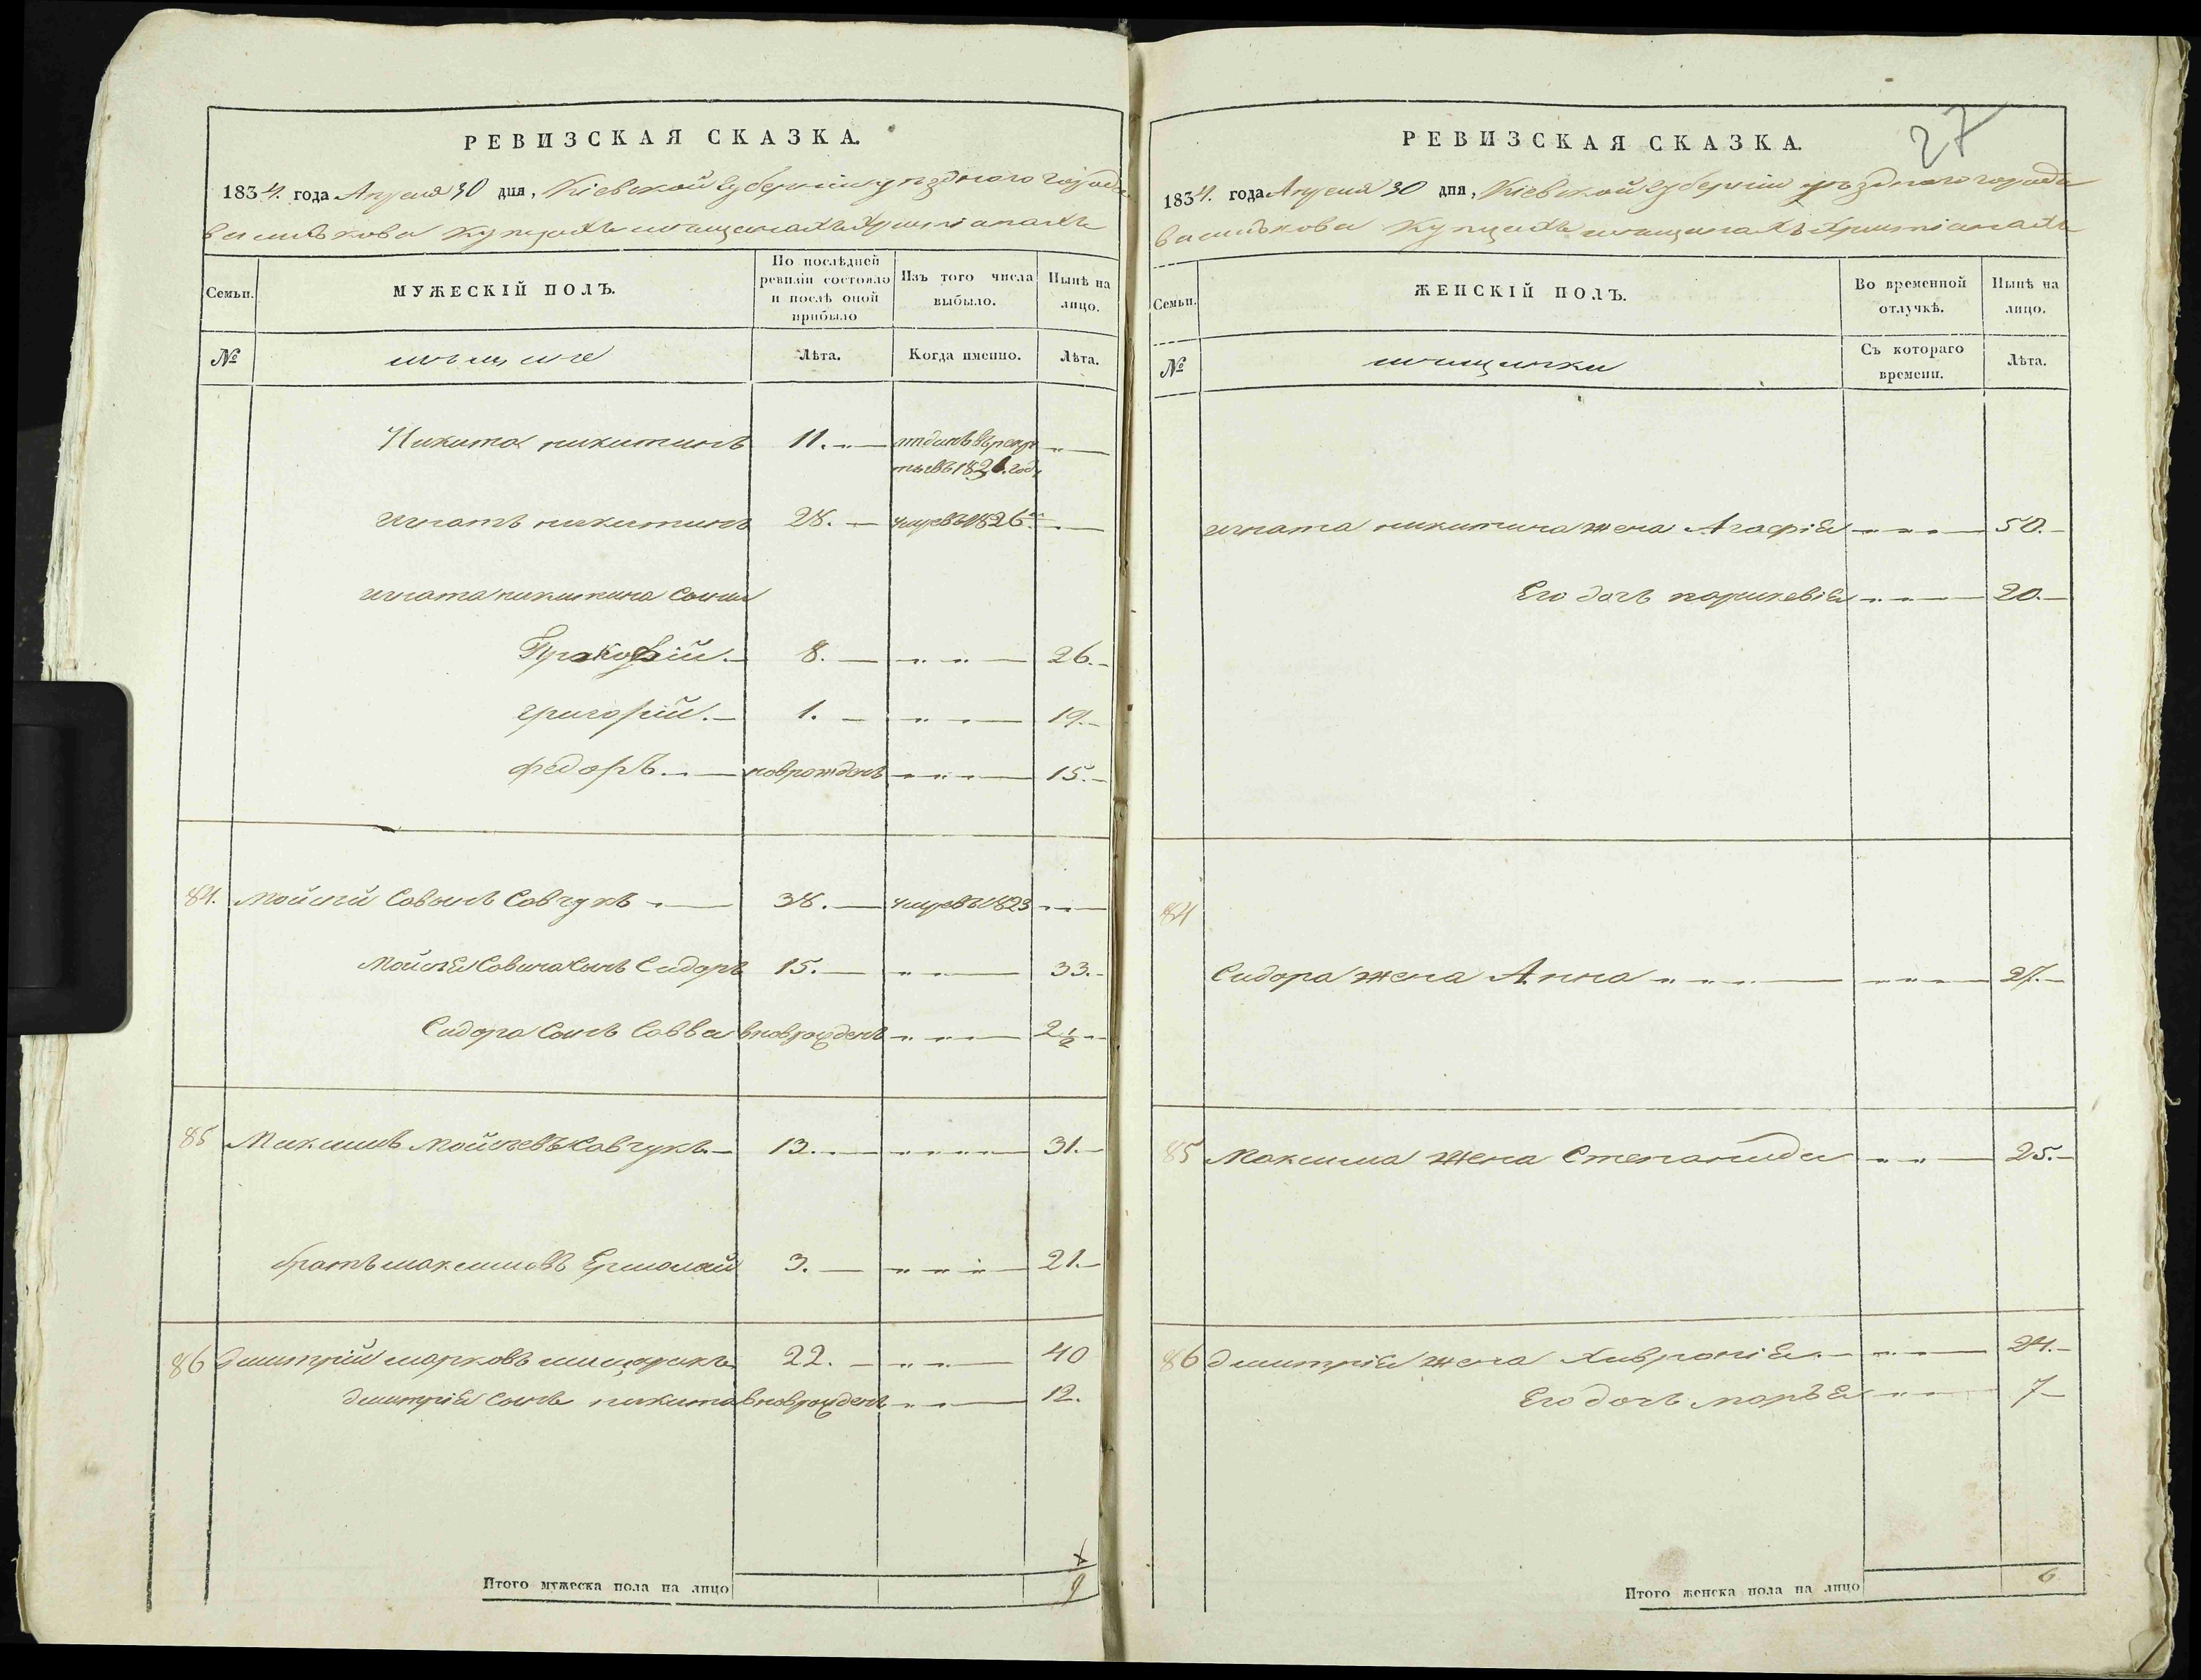 РЕВИЗСКАЯ СКАЗКА.
1834. года Апреля 30 дня, Кіевской Губерніи уѣзднаго города
василькова Купцахъ мѣщанахъ християнахъ
Семьи.
МУЖЕСКІЙ ПОЛЪ.
По послѣдней
ревизіи состояло
и послѣ оной
прибыло
Изъ того числа
выбыло.
Нынѣ на
лицо.
№
мѣщане
Лѣта.
Когда именно.
Лѣта.
Никита никитинъ 11. отданъ врекру
ты въ 1821. году
игнатъ никитинъ 28. умре въ 1826
игната никитина Сыны
Прокофій. 8. 26.
григорій. 1. 19.
федоръ новрожденъ 15.
84. мойсей Савинъ Савчукъ 38. умре въ 1823
мойсея Савина Сынъ Сидоръ 15. 33.
Сидора Сынъ Савва вновьрожденъ 2 1/2
85 Максимъ мойсеевъ Савчукъ 13. 31.
братъ максимовъ Ермолай 3. 21.
86 дмитрій марковъ 22. 40
дмитрія Сынъ никита вновьрожденъ 12.
Итого мужеска пола на лицо 9
РЕВИЗСКАЯ СКАЗКА.
27
1834. года Апреля 30 дня, Кіевской Губерніи уѣзднаго города
василькова Купцахъ мѣщанахъ християнахъ
Семьи.
ЖЕНСКІЙ ПОЛЪ.
Во временной
отлучкѣ.
Нынѣ на
лицо.
№
мѣщанки
Съ котораго
времени.
Лѣта.
игната никитина жена Агафія 50.
Его дочь парискевія 20.
84
Сидора жена Анна 27.
85 Максима жена Степанида 25.
86 дмитрія жена Хивронія 24.
Его дочь марья 7
Итого женска пола на лицо 6